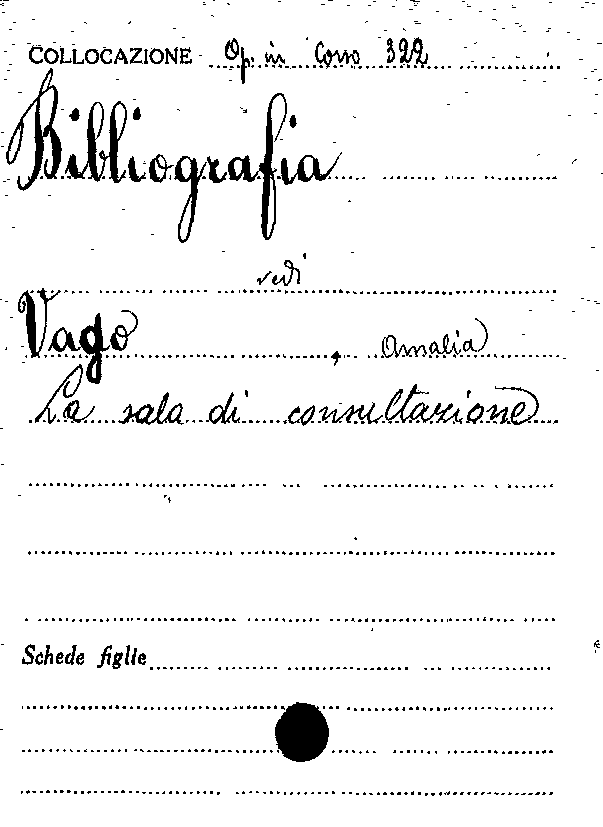 COLLOCAZIONE Op. in Corso 322
Bibliografia
vedi
Vago, Amalia
La sala di consultazione
Schede figlie